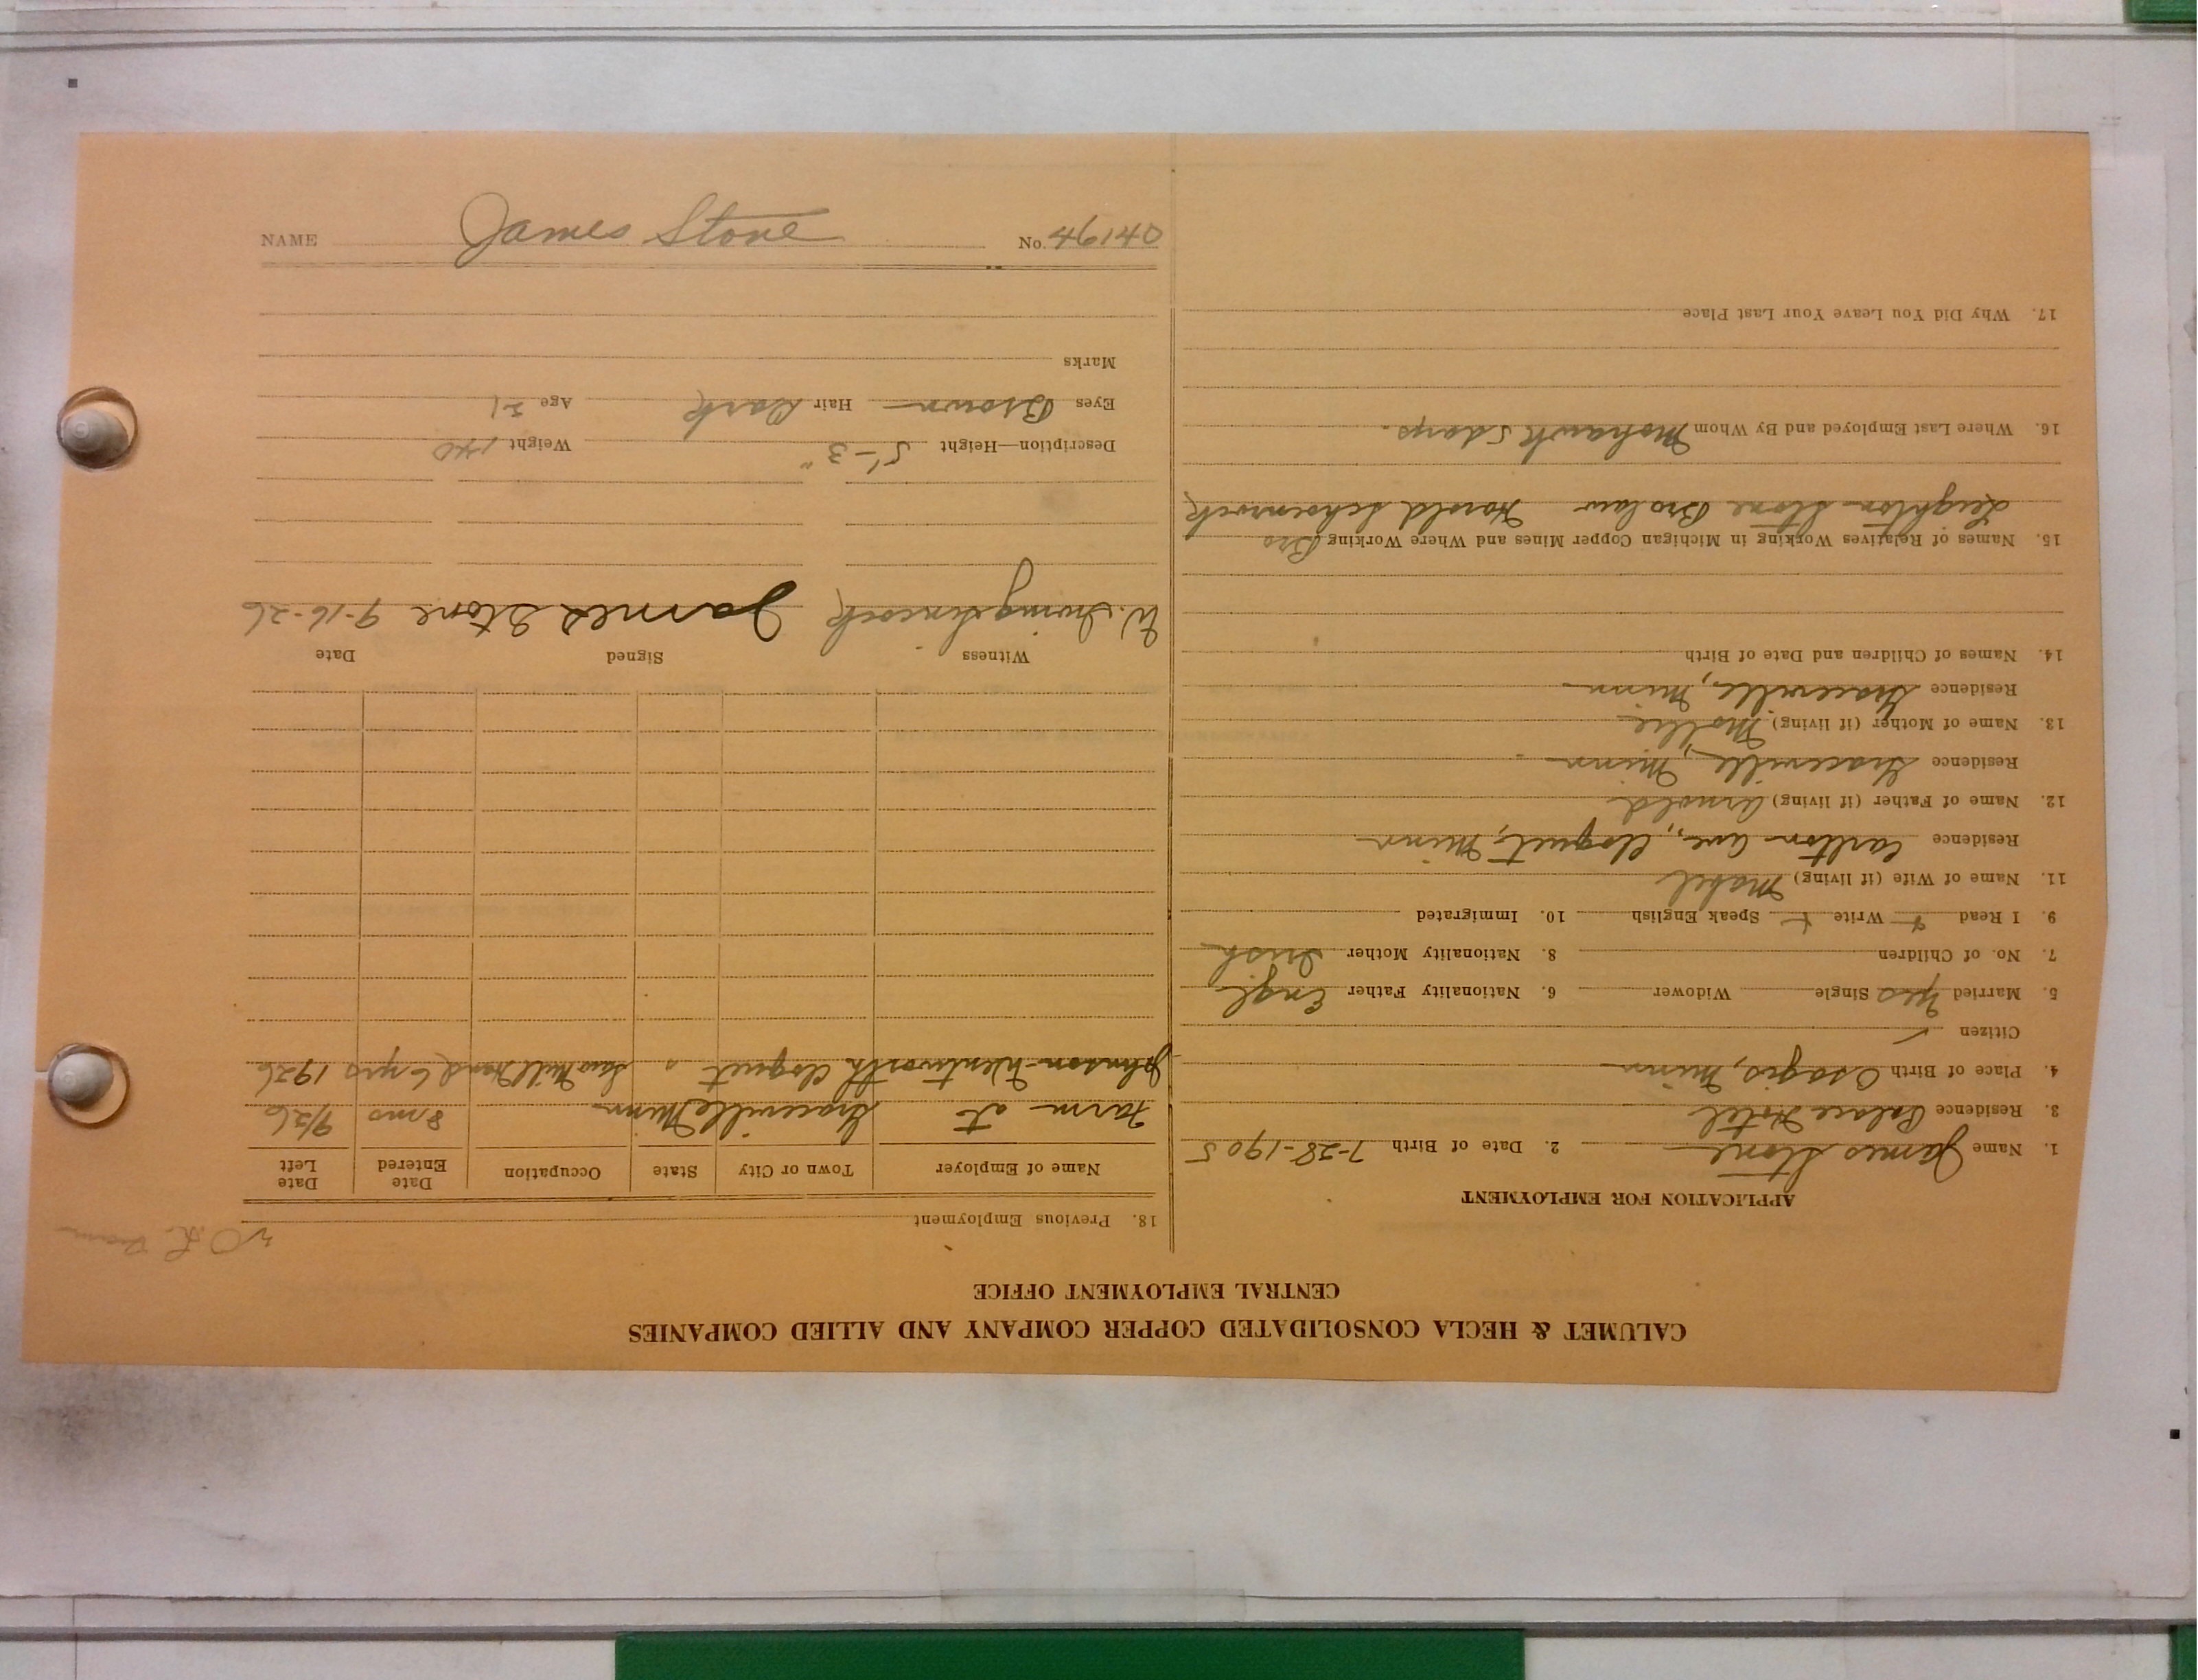 CALUMET & HECLA CONSOLIDATED COPPER COMPANY AND ALLIED COMPANIES
CENTRAL EMPLOYMENT OFFICE
APPLICATION FOR EMPLOYMENT
1. Name James Stone 2. Date of Birth 7-28-1905
3. Residence Palace Hotel
4. Place of Birth Osages, Minn
Citizen ✓
5. Married Yes Single Widower 6. Nationality Father Engl
7. No. of Children 8. Nationality Mother Irish
9. I Read + Write + Speak English 10. Immigrated
11. Name of Wife (if living) Mabel
Residence Carlton Ave., Cloquet, Minn
12. Name of Father (if living) Arnold
Residence Graceville, Minn
13. Name of Mother (if living) Mollie
Residence Graceville, Minn
14. Names of Children and Date of Birth
15. Names of Relatives Working in Michigan Copper Mines and Where Working Bro
Leighton Stone Brolaw Harold Schoenrock
16. Where Last Employed and By Whom Mohawk 5 days.
17. Why Did You Leave Your Last Place
18. Previous Employment
Name of Employer Town or City State Occupation Date Entered Date Left
Farm at Graceville Minn 8 mo 9/26
Johnson-Wentworth Cloquet " Saw Mill Hand 6 yrs 1926
Witness Signed Date
W. Irving James Stone 9-16-26
Description—Height 5'-3" Weight 140
Eyes Brown Hair Dark Age 21
Marks
NAME James Stone No. 46140